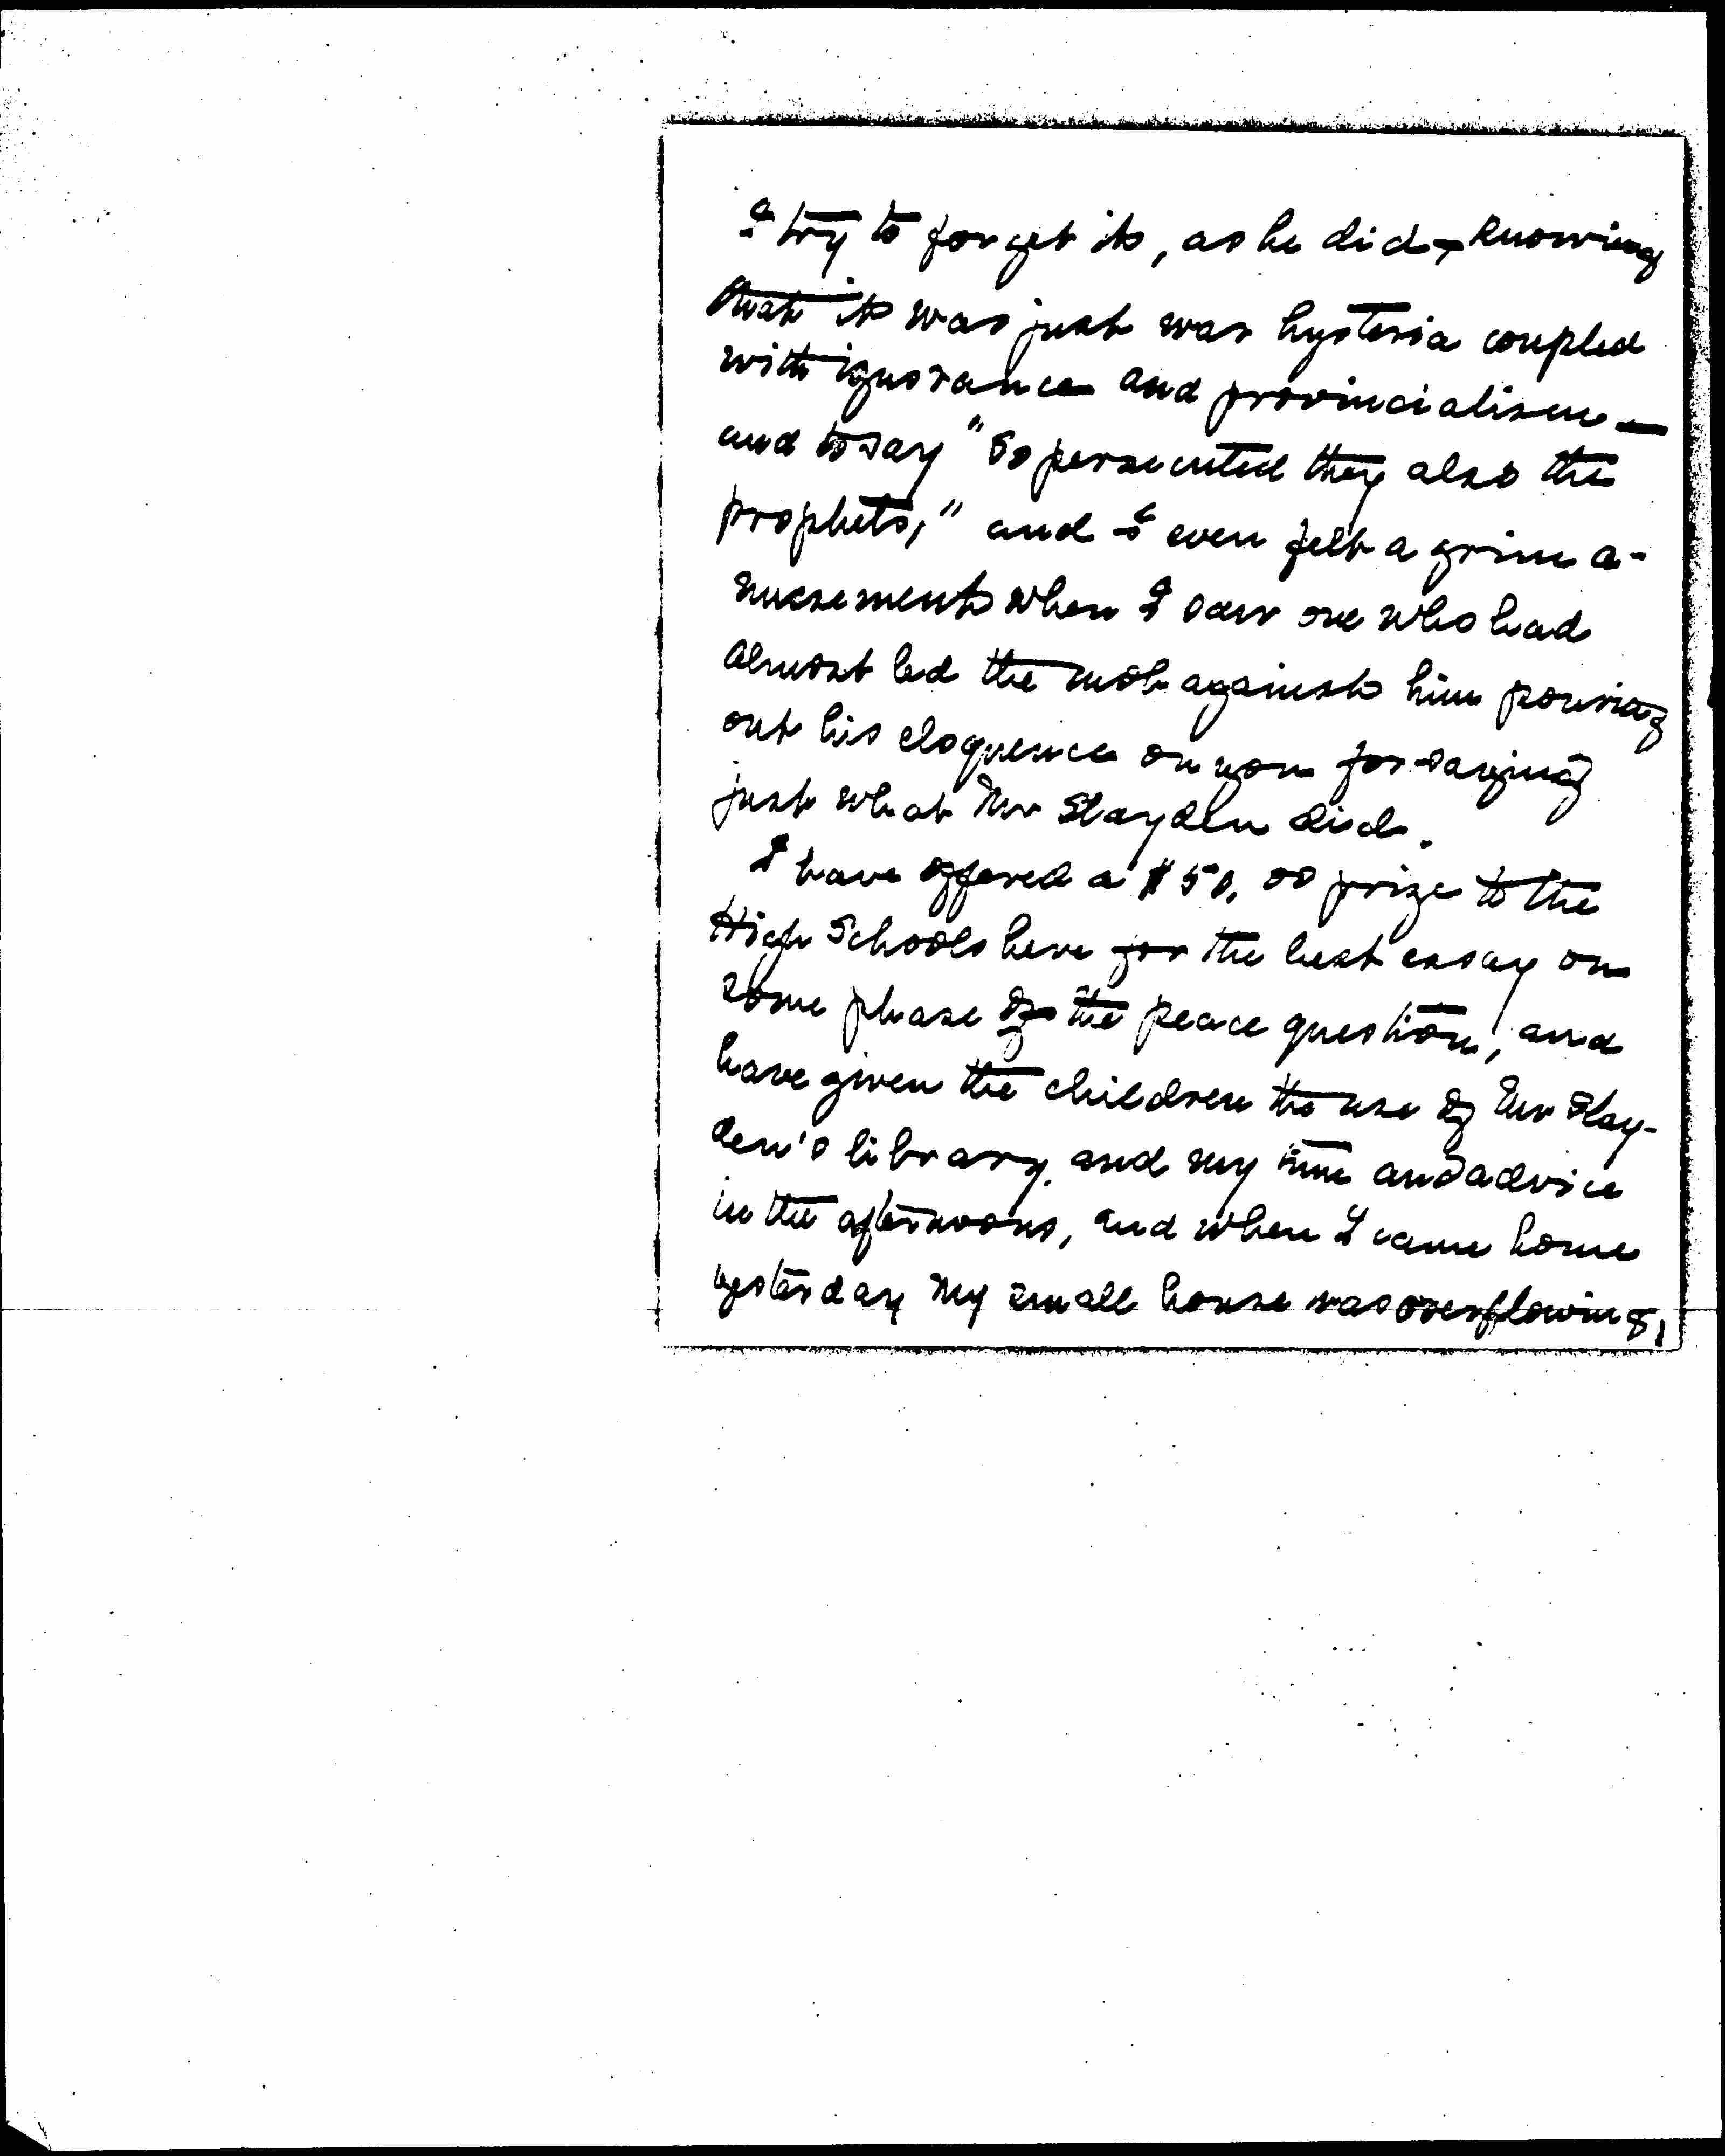 I try to forget it, as he did, knowing
that it was just war hysteria coupled
with ignorance and provincialism—
and to say "So persecuted they also the
prophets," and I even felt a grim a-
musement when I saw one who had
almost led the mob against him pouring
out his eloquence on you for saying
just what Mr Slayden did.
I have offered a $50.00 prize to the
High Schools here for the best essay on
some phase of the peace question, and
have given the children the use of Mr Slay-
den's library, and my time and advice
in the afternoons, and when I came home
yesterday my small house was overflowing,